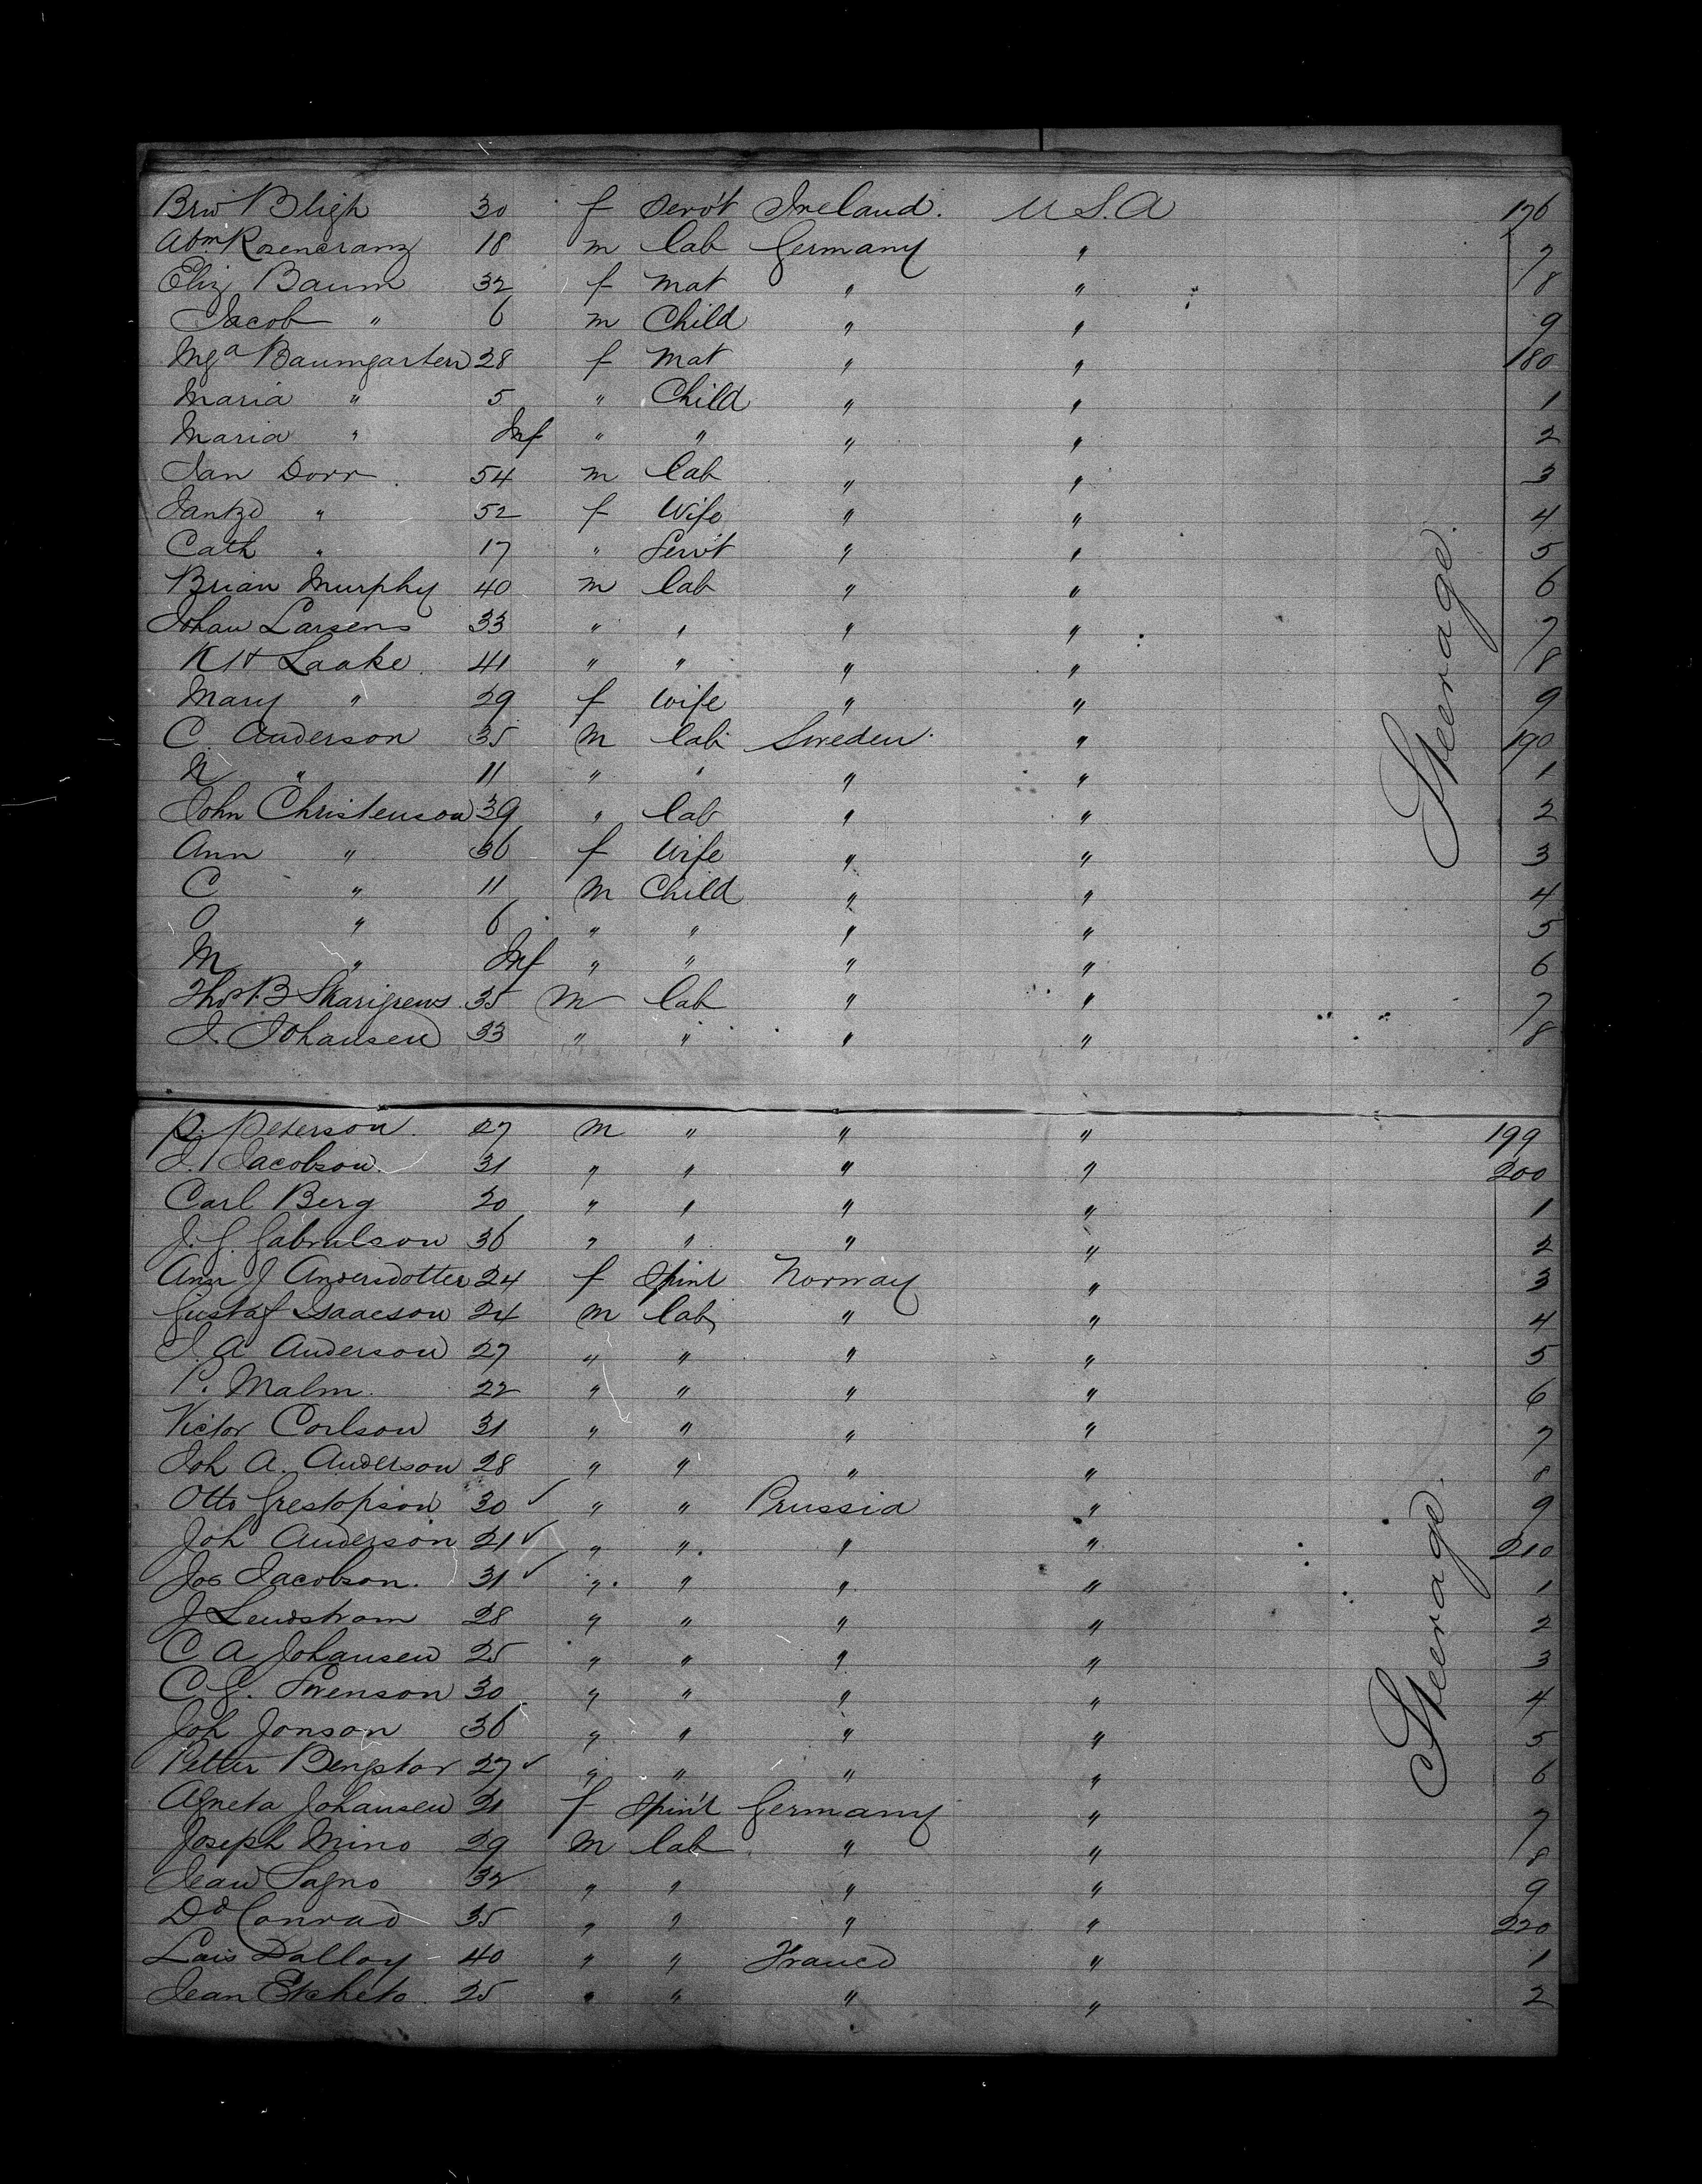 Brid Bligh 30 f Serv't Ireland. U.S.A 176
Abm Rosencranz 18 m lab Germany " 7
Eliz Baum 32 f Mat " " 8
Jacob " 6 m Child " " 9
Mga Baumgarten 28 f Mat " " 180
Maria " 5 " Child " " 1
Maria " Inf " " " " 2
Jan Dorr 54 m lab " " 3
Jantze " 52 f Wife " " 4
Cath " 17 " Serv't " " 5
Brian Murphy 40 m lab " " 6
Johan Larsens 33 " " " " 7
K H Laake 41 " " " " 8
Mary " 29 f Wife " " 9
C. Anderson 35 m lab Sweden " 190
N " 11 " " " " 1
John Christenson 39 " lab " " 2
Ann " 36 f Wife " " 3
C " 11 m Child " " 4
O " 6 " " " " 5
M " Inf " " " " 6
Thos B 35 m lab " " 7
J. Johansen 33 " " " " 8
Steerage.
P. Peterson 27 m " " " 199
J. Jacobson 31 " " " " 200
Carl Berg 20 " " " " 1
J. G. Gabrulson 36 " " " " 2
Ann J Andersdotter 24 f Spin't Norway " 3
Gustaf Isaacson 24 m lab " " 4
J. A Anderson 27 " " " " 5
P. Malm 22 " " " " 6
Victor Corlson 31 " " " " 7
Joh A. Anderson 28 " " " " 8
Otto Grestopson 30 " " Prussia " 9
Joh Anderson 21 " " " " 210
Jos Jacobson. 31 " " " " 1
J Lendstrom 28 " " " " 2
C A Johansen 25 " " " " 3
C G. Svenson 30 " " " " 4
Joh Jonson 36 " " " " 5
Petter Bengstor 27 " " " " 6
Agneta Johansen 21 f Spin't Germany " 7
Joseph Mino 29 m lab " " 8
Jean Sagno 32 " " " " 9
Dd Conrad 35 " " " " 220
Lais Dalloy 40 " " France " 1
Jean Etcheto 25 " " " " 2
Steerage.